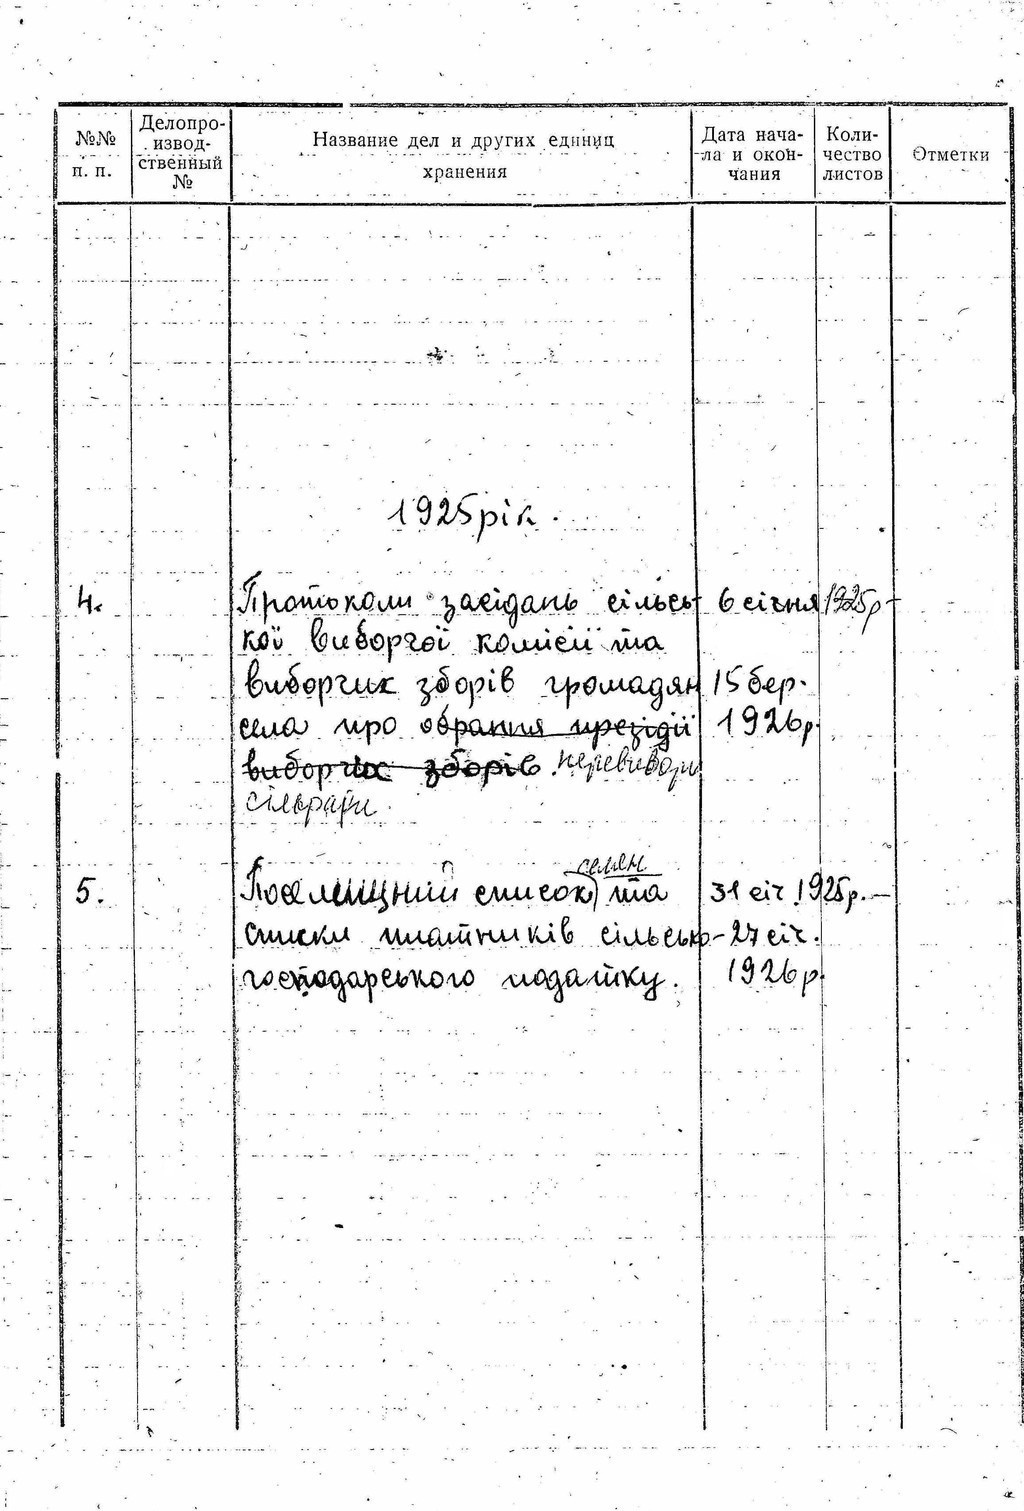 №№ п. п.
Делопроизводственный №
Название дел и других единиц хранения
Дата начала и окончания
Количество листов
Отметки
1925 рік.
4. Протоколи засідань сільсь- 6 січня 1925р -
кої виборчої комісії та
виборчих зборів громадян 15 бер.
села про обрання президії 1926р.
виборчих зборів. перевибори
сільради.
селян
5. Поселищний список та 31 січ. 1925р. -
списки платників сільсько- 27 січ.
господарського податку. 1926 р.